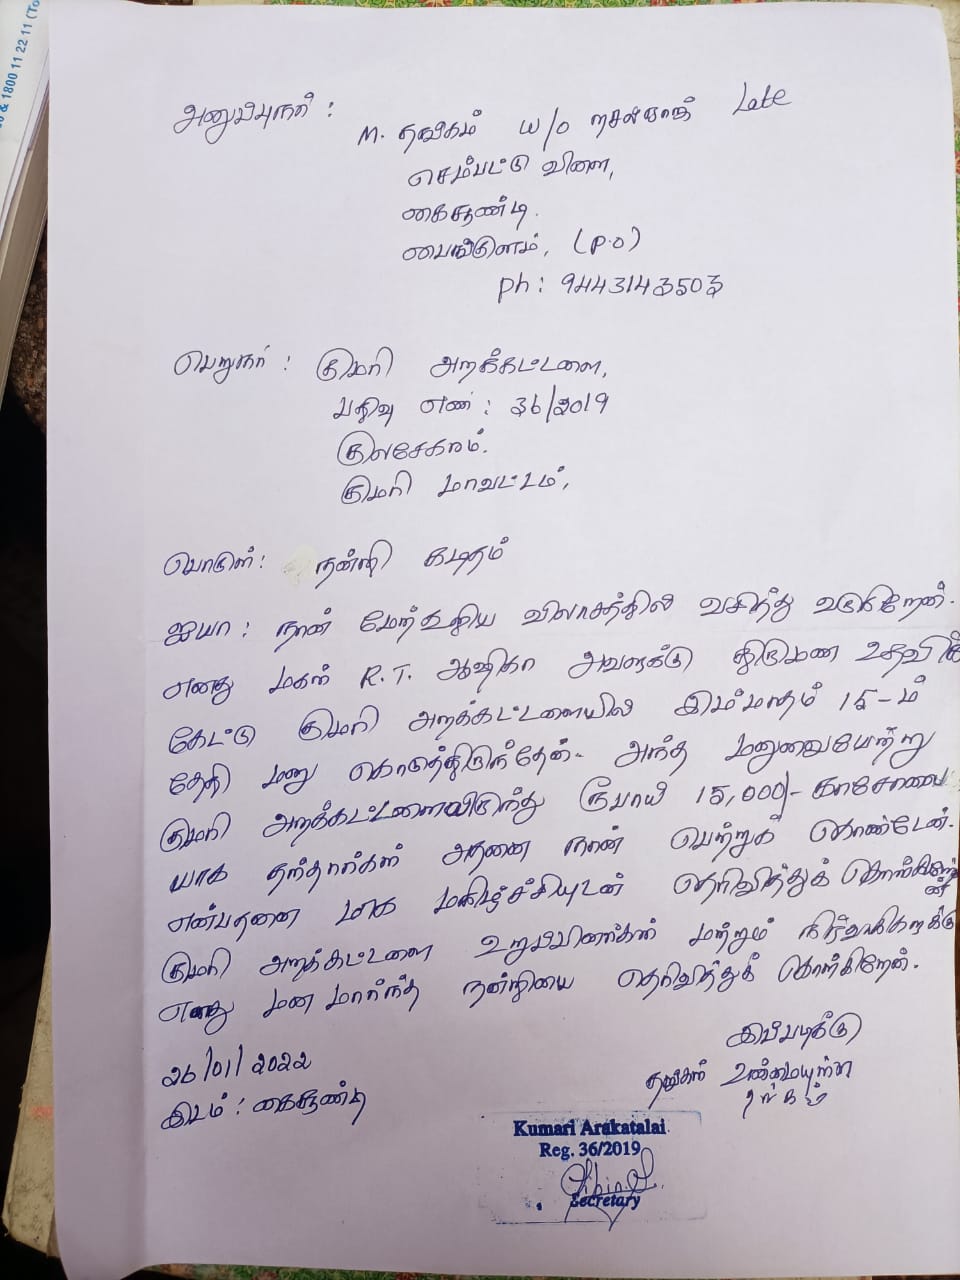 & 1800 11 22 11 (To
அனுப்புநர் :
M. தங்கம் w/o Late
செம்பட்டு விளை,
கைசூண்டி.
பைங்குளம், (P.O)
ph : 9443143503
பெறுநர் : குமரி அறக்கட்டளை,
பதிவு எண் : 36/2019
குலசேகரம்.
குமரி மாவட்டம்,
பொருள் : நன்றி கடிதம்
ஐயா : நான் மேற்கூறிய விலாசத்தில் வசித்து வருகிறேன்.
எனது மகள் R.T. ஆஷிகா அவளுக்கு திருமண உதவிக்
கேட்டு குமரி அறக்கட்டளையில் இம்மாதம் 15-ம்
தேதி மனு கொடுத்திருந்தேன். அந்த மனுவையேற்று
குமரி அறக்கட்டளையிருந்து ரூபாய் 15,000/- காசோலை
யாக தந்தார்கள் அதனை நான் பெற்றுக் கொண்டேன்.
என்பதனை மிக மகிழ்ச்சியுடன் தெரிவித்துக் கொள்கிறேன்
குமரி அறக்கட்டளை உறுப்பினர்கள் மற்றும் நிர்வாகிகளுக்கு
எனது மன மார்ந்த நன்றியை தெரிவித்துக் கொள்கிறேன்.
இப்படிக்கு
26/01/2022
தங்கள் உண்மையுள்ள
இடம் : கைசூண்டி
தங்கம்
Kumari Arakatalai
Reg. 36/2019
Secretary